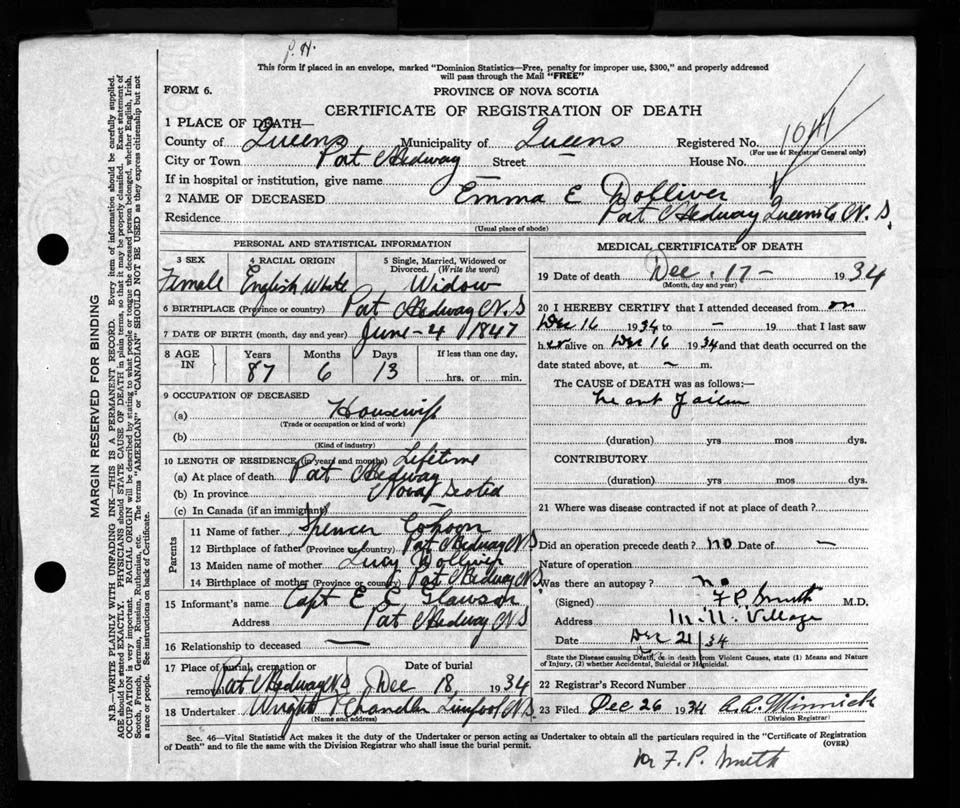 P. H.
This form if placed in an envelope, marked "Dominion Statistics—Free, penalty for improper use, $300," and properly addressed
will pass through the Mail "FREE"
FORM 6.
PROVINCE OF NOVA SCOTIA
CERTIFICATE OF REGISTRATION OF DEATH
1 PLACE OF DEATH—
County of Queens Municipality of Queens Registered No.
(For use of Registrar General only)
City or Town Port Medway Street — House No.
If in hospital or institution, give name —
2 NAME OF DECEASED Emma E Dolliver
Residence Port Medway Queens Co N. S.
(Usual place of abode)
PERSONAL AND STATISTICAL INFORMATION
3 SEX Female
4 RACIAL ORIGIN English White
5 Single, Married, Widowed or Divorced. (Write the word) Widow
6 BIRTHPLACE (Province or country) Port Medway N. S
7 DATE OF BIRTH (month, day and year) June - 4 1847
8 AGE IN Years 87 Months 6 Days 13 If less than one day, hrs. or min.
9 OCCUPATION OF DECEASED
(a) Housewife
(Trade or occupation or kind of work)
(b)
(Kind of industry)
10 LENGTH OF RESIDENCE (in years and months) Lifetime
(a) At place of death Port Medway
(b) In province Nova Scotia
(c) In Canada (if an immigrant) —
Parents
11 Name of father Spencer Cohoon
12 Birthplace of father (Province or country) Port Medway N S
13 Maiden name of mother Lucy Dolliver
14 Birthplace of mother (Province or country) Port Medway N. S.
15 Informant's name Capt E E
Address Port Medway N S
16 Relationship to deceased —
17 Place of burial, cremation or removal Port Medway N S Date of burial Dec 18, 1934
18 Undertaker Wright Chandler Liverpool N. S.
(Name and address)
MEDICAL CERTIFICATE OF DEATH
19 Date of death Dec. 17 - 1934
(Month, day and year)
20 I HEREBY CERTIFY that I attended deceased from on
Dec 16 1934 to — 19 that I last saw
her alive on Dec 16 1934 and that death occurred on the
date stated above, at ~ m.
The CAUSE of DEATH was as follows:—
Heart Failure
(duration) yrs mos dys.
CONTRIBUTORY
(duration) yrs mos dys.
21 Where was disease contracted if not at place of death?
Did an operation precede death? no Date of —
Nature of operation
Was there an autopsy? no
(Signed) F P Smith M.D.
Address Mill Village
Date Dec 21/34
State the Disease causing Death, or in death from Violent Causes, state (1) Means and Nature
of Injury, (2) whether Accidental, Suicidal or Homicidal.
22 Registrar's Record Number
23 Filed Dec 26 1934 Minnick
(Division Registrar)
Sec. 46—Vital Statistics Act makes it the duty of the Undertaker or person acting as Undertaker to obtain all the particulars required in the "Certificate of Registration
of Death" and to file the same with the Division Registrar who shall issue the burial permit.
(OVER)
F. P. Smith
MARGIN RESERVED FOR BINDING
N.B.—WRITE PLAINLY WITH UNFADING INK—THIS IS A PERMANENT RECORD. Every item of information should be carefully supplied.
AGE should be stated EXACTLY. PHYSICIANS should STATE CAUSE OF DEATH in plain terms, so that it may be properly classified. Exact statement of
OCCUPATION is very important. RACIAL ORIGIN will be described by stating to what people or tongue the deceased person belonged, whether English, Irish,
Scotch, French, German, Russian, Ruthenian, etc. The terms "AMERICAN" or "CANADIAN" SHOULD NOT BE USED as they express citizenship but not
a race or people. See instructions on back of Certificate.